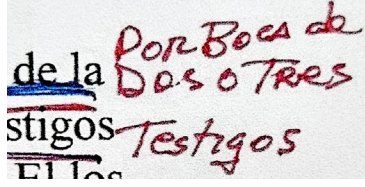 Por Boca de
de la Dos o Tres
stigos Testigos
El los